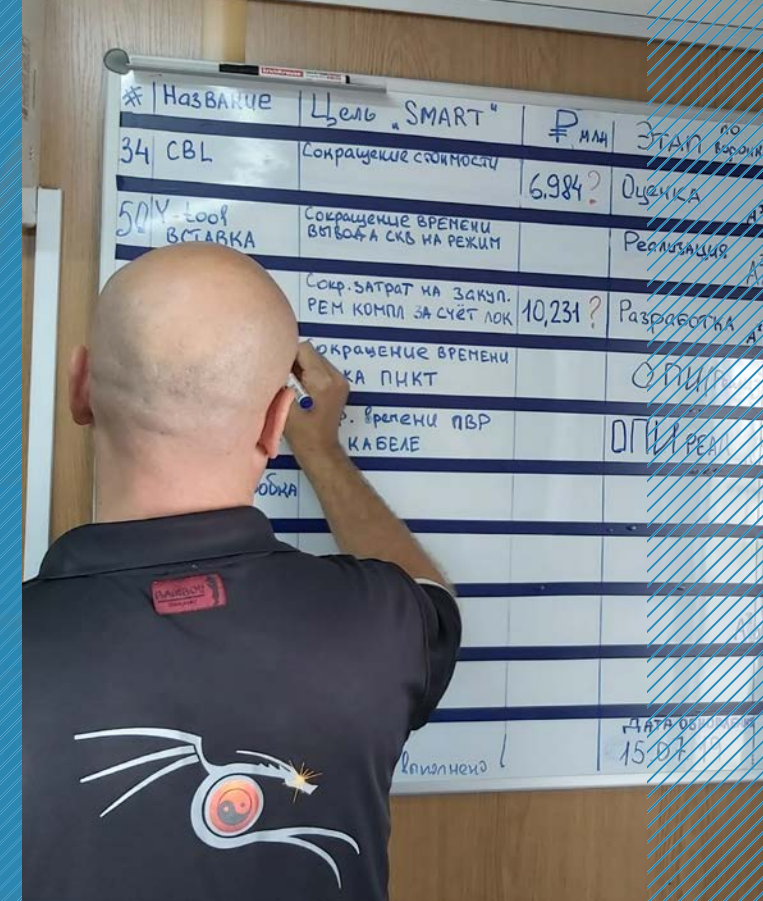 # Название Цель „SMART“ ₽ млн Этап по
34 CBL Сокращение стоимости 6.984? Оценка
50 Y-tool Сокращение времени
ВСТАВКА вывода скв на режим Реализация
Сокр. затрат на закуп.
рем компл за счёт лок 10,231? Разработка
Сокращение времени
ПНКТ ОПИ
времени ПВР
КАБЕЛЕ ОПИ РЕАЛ
BAD BOY
Дата
15.07
выполнено